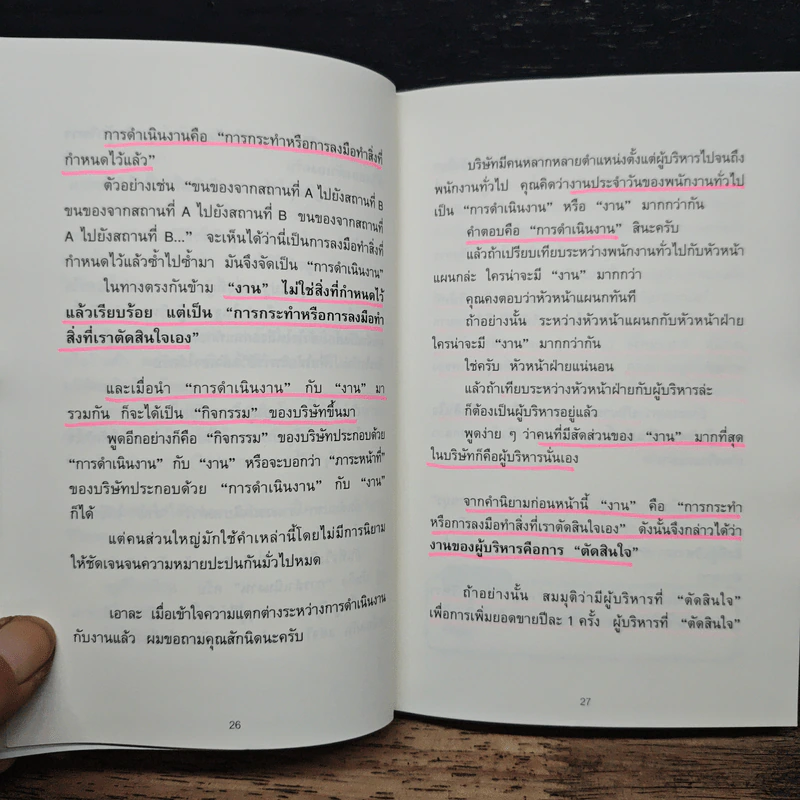 การดำเนินงานคือ “การกระทำหรือการลงมือทำสิ่งที่
กำหนดไว้แล้ว”
ตัวอย่างเช่น “ขนของจากสถานที่ A ไปยังสถานที่ B
ขนของจากสถานที่ A ไปยังสถานที่ B ขนของจากสถานที่
A ไปยังสถานที่ B...” จะเห็นได้ว่านี่เป็นการลงมือทำสิ่งที่
กำหนดไว้แล้วซ้ำไปซ้ำมา มันจึงจัดเป็น “การดำเนินงาน”
ในทางตรงกันข้าม “งาน” ไม่ใช่สิ่งที่กำหนดไว้
แล้วเรียบร้อย แต่เป็น “การกระทำหรือการลงมือทำ
สิ่งที่เราตัดสินใจเอง”
และเมื่อนำ “การดำเนินงาน” กับ “งาน” มา
รวมกัน ก็จะได้เป็น “กิจกรรม” ของบริษัทขึ้นมา
พูดอีกอย่างก็คือ “กิจกรรม” ของบริษัทประกอบด้วย
“การดำเนินงาน” กับ “งาน” หรือจะบอกว่า “ภาระหน้าที่”
ของบริษัทประกอบด้วย “การดำเนินงาน” กับ “งาน”
ก็ได้
แต่คนส่วนใหญ่มักใช้คำเหล่านี้โดยไม่มีการนิยาม
ให้ชัดเจนจนความหมายปะปนกันมั่วไปหมด
เอาละ เมื่อเข้าใจความแตกต่างระหว่างการดำเนินงาน
กับงานแล้ว ผมขอถามคุณสักนิดนะครับ
26
บริษัทมีคนหลากหลายตำแหน่งตั้งแต่ผู้บริหารไปจนถึง
พนักงานทั่วไป คุณคิดว่างานประจำวันของพนักงานทั่วไป
เป็น “การดำเนินงาน” หรือ “งาน” มากกว่ากัน
คำตอบคือ “การดำเนินงาน” สินะครับ
แล้วถ้าเปรียบเทียบระหว่างพนักงานทั่วไปกับหัวหน้า
แผนกล่ะ ใครน่าจะมี “งาน” มากกว่า
คุณคงตอบว่าหัวหน้าแผนกทันที
ถ้าอย่างนั้น ระหว่างหัวหน้าแผนกกับหัวหน้าฝ่าย
ใครน่าจะมี “งาน” มากกว่ากัน
ใช่ครับ หัวหน้าฝ่ายแน่นอน
แล้วถ้าเทียบระหว่างหัวหน้าฝ่ายกับผู้บริหารล่ะ
ก็ต้องเป็นผู้บริหารอยู่แล้ว
พูดง่าย ๆ ว่าคนที่มีสัดส่วนของ “งาน” มากที่สุด
ในบริษัทก็คือผู้บริหารนั่นเอง
จากคำนิยามก่อนหน้านี้ “งาน” คือ “การกระทำ
หรือการลงมือทำสิ่งที่เราตัดสินใจเอง” ดังนั้นจึงกล่าวได้ว่า
งานของผู้บริหารคือการ “ตัดสินใจ”
ถ้าอย่างนั้น สมมุติว่ามีผู้บริหารที่ “ตัดสินใจ”
เพื่อการเพิ่มยอดขายปีละ 1 ครั้ง ผู้บริหารที่ “ตัดสินใจ”
27